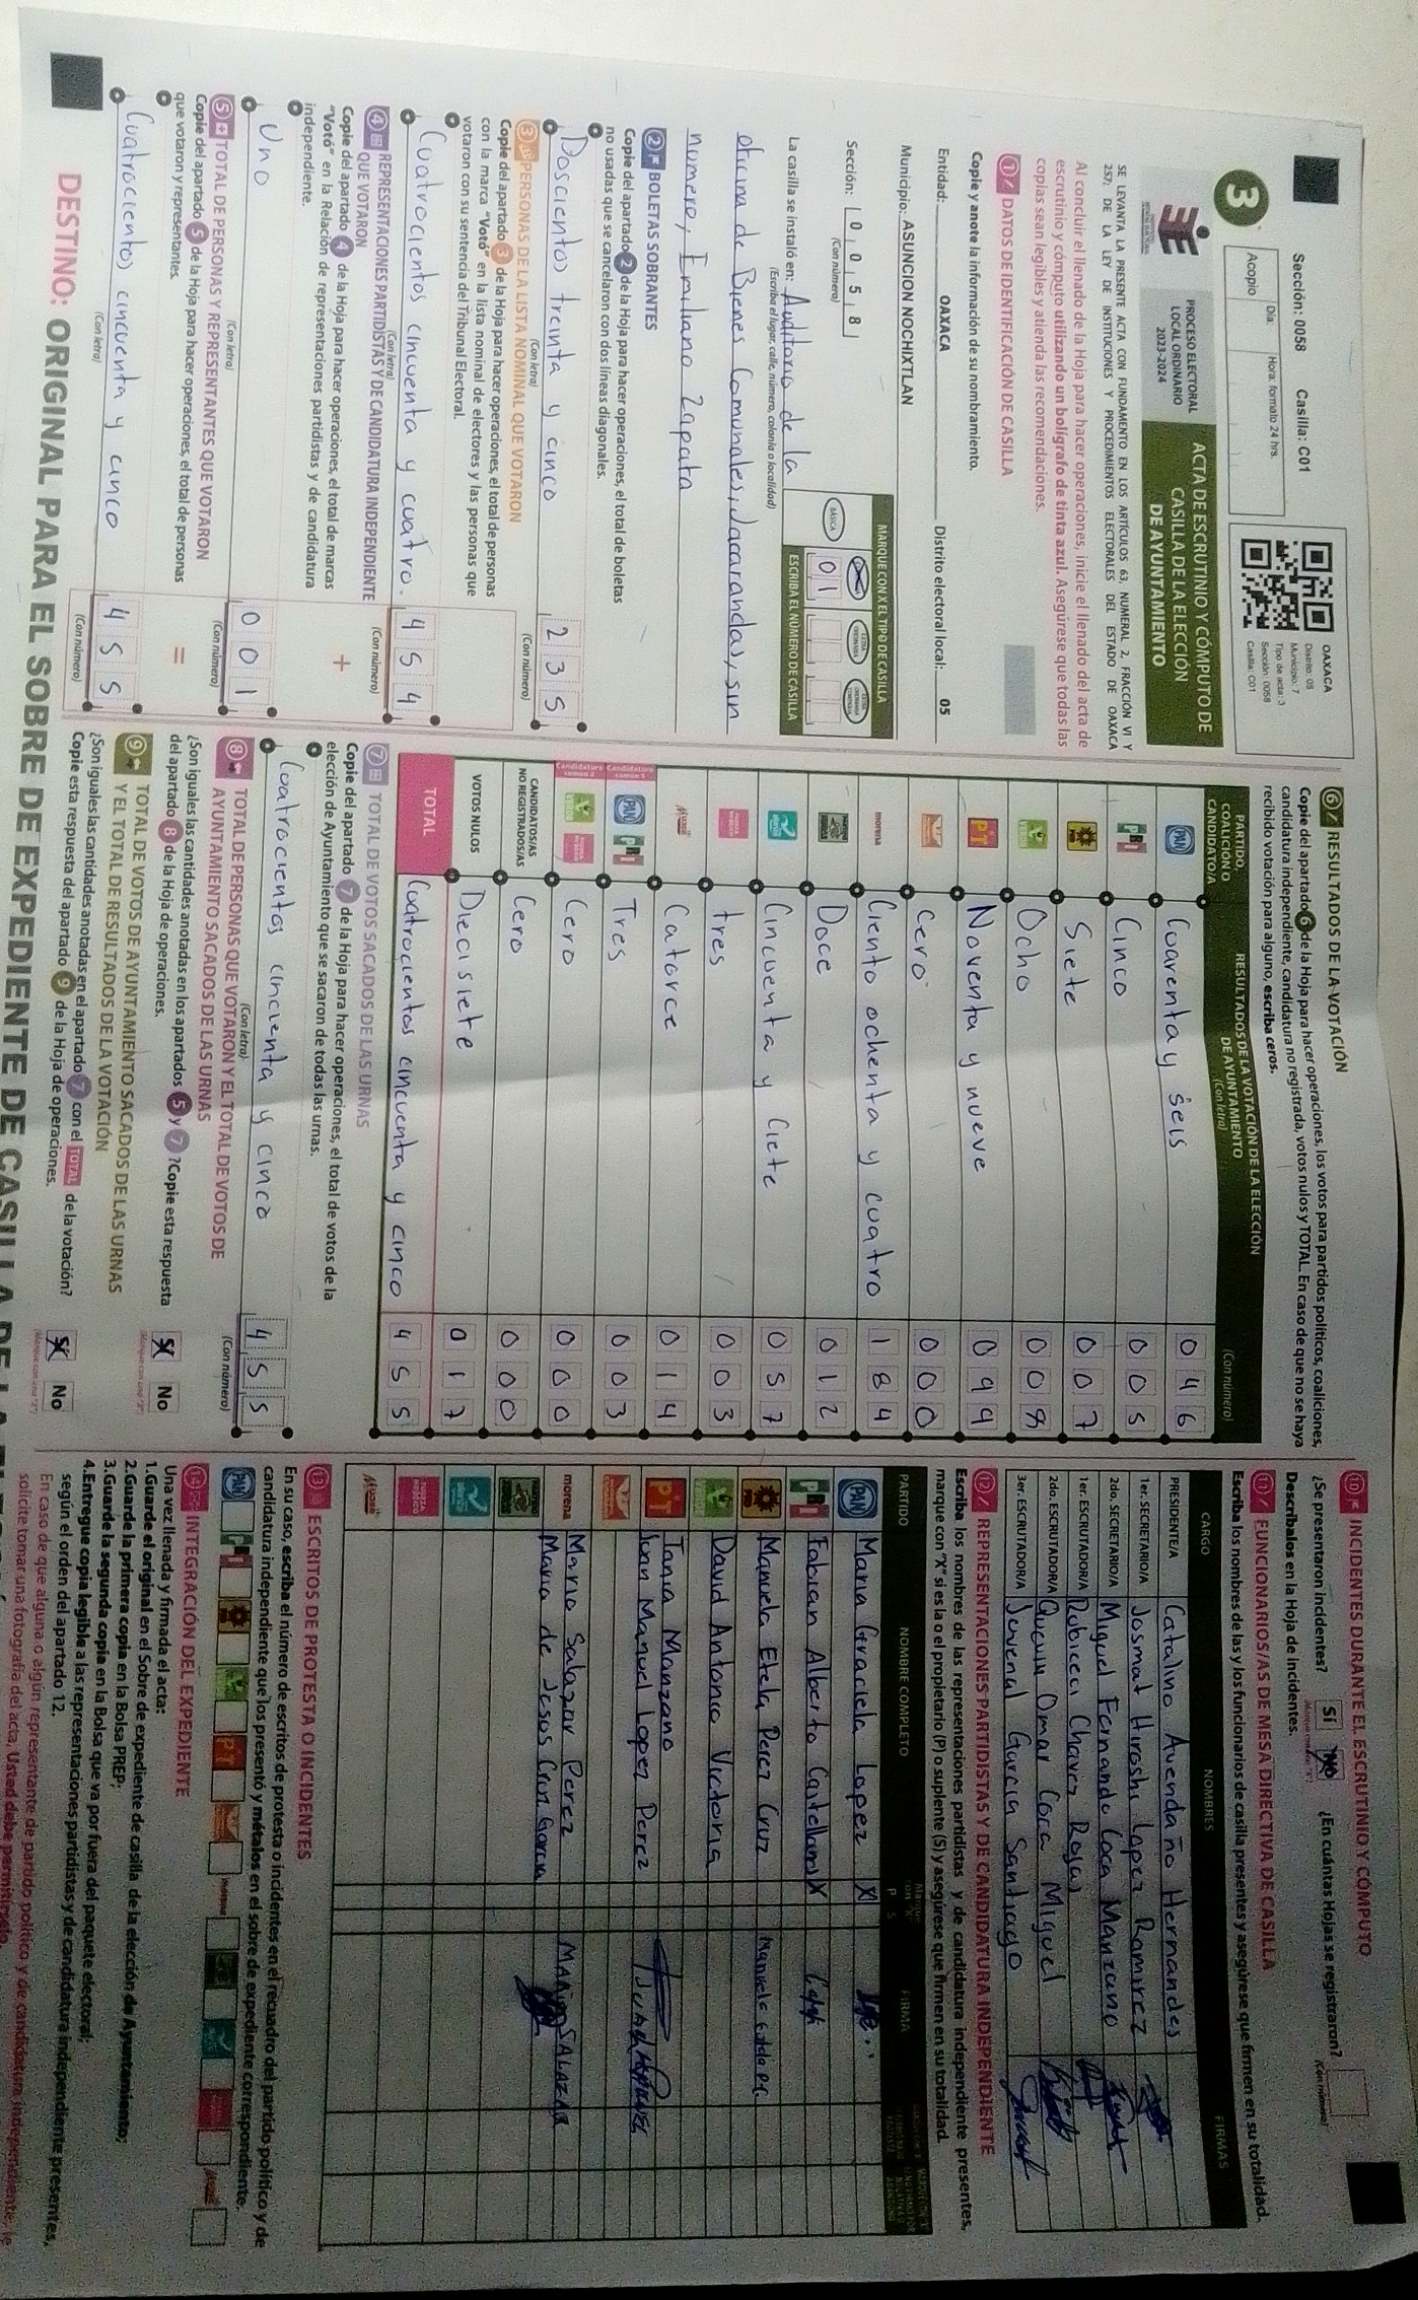 Sección: 0058 Casilla: C01
3
Acopio
Día:
Hora: formato 24 hrs.
OAXACA
Distrito: 05
Municipio: 7
Tipo de acta: 3
Sección: 0058
Casilla: C01
PROCESO ELECTORAL
LOCAL ORDINARIO
2023-2024
ACTA DE ESCRUTINIO Y CÓMPUTO DE
CASILLA DE LA ELECCIÓN
DE AYUNTAMIENTO
SE LEVANTA LA PRESENTE ACTA CON FUNDAMENTO EN LOS ARTÍCULOS 63, NUMERAL 2, FRACCIÓN VI Y
257; DE LA LEY DE INSTITUCIONES Y PROCEDIMIENTOS ELECTORALES DEL ESTADO DE OAXACA
Al concluir el llenado de la Hoja para hacer operaciones, inicie el llenado del acta de
escrutinio y cómputo utilizando un bolígrafo de tinta azul. Asegúrese que todas las
copias sean legibles y atienda las recomendaciones.
1 DATOS DE IDENTIFICACIÓN DE CASILLA
Copie y anote la información de su nombramiento.
Entidad: OAXACA Distrito electoral local: 05
Municipio: ASUNCION NOCHIXTLAN
Sección: 0 0 5 8
(Con número)
MARQUE CON X EL TIPO DE CASILLA
BÁSICA
01
ESCRIBA EL NÚMERO DE CASILLA
La casilla se instaló en: Auditorio de la
(Escriba el lugar, calle, número, colonia o localidad)
oficina de Bienes Comunales, Jacarandas, sin
numero, Emiliano Zapata
2 BOLETAS SOBRANTES
Copie del apartado 2 de la Hoja para hacer operaciones, el total de boletas
no usadas que se cancelaron con dos líneas diagonales.
Doscientos treinta y cinco 2 3 5
(Con letra) (Con número)
3 PERSONAS DE LA LISTA NOMINAL QUE VOTARON
Copie del apartado 3 de la Hoja para hacer operaciones, el total de personas
con la marca "Votó" en la lista nominal de electores y las personas que
votaron con su sentencia del Tribunal Electoral.
Cuatrocientos cincuenta y cuatro. 4 5 4
(Con letra) (Con número)
4 REPRESENTACIONES PARTIDISTAS Y DE CANDIDATURA INDEPENDIENTE
QUE VOTARON
Copie del apartado 4 de la Hoja para hacer operaciones, el total de marcas
"Votó" en la Relación de representaciones partidistas y de candidatura
independiente.
+
Uno 0 0 1
(Con letra) (Con número)
5 TOTAL DE PERSONAS Y REPRESENTANTES QUE VOTARON
Copie del apartado 5 de la Hoja para hacer operaciones, el total de personas
que votaron y representantes.
=
Cuatrocientos cincuenta y cinco 4 5 5
(Con letra) (Con número)
6 RESULTADOS DE LA VOTACIÓN
Copie del apartado 6 de la Hoja para hacer operaciones, los votos para partidos políticos, coaliciones,
candidatura independiente, candidatura no registrada, votos nulos y TOTAL. En caso de que no se haya
recibido votación para alguno, escriba ceros.
PARTIDO,
COALICIÓN O
CANDIDATO/A
RESULTADOS DE LA VOTACIÓN DE LA ELECCIÓN
DE AYUNTAMIENTO
(Con letra)
(Con número)
PAN Cuarenta y seis 0 4 6
PRI Cinco 0 0 5
PRD Siete 0 0 7
VERDE Ocho 0 0 8
PT Noventa y nueve 0 9 9
cero 0 0 0
morena Ciento ochenta y cuatro 1 8 4
Doce 0 1 2
Cincuenta y Ciete 0 5 7
tres 0 0 3
Mujer Catorce 0 1 4
Candidatura común 1
PAN PRI Tres 0 0 3
Candidatura común 2
Cero 0 0 0
CANDIDATOS/AS
NO REGISTRADOS/AS Cero 0 0 0
VOTOS NULOS Diecisiete 0 1 7
TOTAL Cuatrocientos cincuenta y cinco 4 5 5
7 TOTAL DE VOTOS SACADOS DE LAS URNAS
Copie del apartado 7 de la Hoja para hacer operaciones, el total de votos de la
elección de Ayuntamiento que se sacaron de todas las urnas.
Cuatrocientos cincuenta y cinco 4 5 5
(Con letra) (Con número)
8 TOTAL DE PERSONAS QUE VOTARON Y EL TOTAL DE VOTOS DE
AYUNTAMIENTO SACADOS DE LAS URNAS
¿Son iguales las cantidades anotadas en los apartados 5 y 7? Copie esta respuesta
del apartado 8 de la Hoja de operaciones.
Sí No
9 TOTAL DE VOTOS DE AYUNTAMIENTO SACADOS DE LAS URNAS
Y EL TOTAL DE RESULTADOS DE LA VOTACIÓN
¿Son iguales las cantidades anotadas en el apartado 7 con el TOTAL de la votación?
Copie esta respuesta del apartado 9 de la Hoja de operaciones.
Sí No
10 INCIDENTES DURANTE EL ESCRUTINIO Y CÓMPUTO
¿Se presentaron incidentes? Sí No ¿En cuántas Hojas se registraron?
(Con número)
Descríbalos en la Hoja de incidentes.
11 FUNCIONARIOS/AS DE MESA DIRECTIVA DE CASILLA
Escriba los nombres de las y los funcionarios de casilla presentes y asegúrese que firmen en su totalidad.
CARGO NOMBRES FIRMAS
PRESIDENTE/A Catalino Avendaño Hernandes
1er. SECRETARIO/A Josmat Hiroshi Lopez Ramirez
2do. SECRETARIO/A Miguel Fernando Coca Manzano
1er. ESCRUTADOR/A Chavez Rojas
2do. ESCRUTADOR/A Omar Coca Miguel
3er. ESCRUTADOR/A Juvenal Garcia Santiago
12 REPRESENTACIONES PARTIDISTAS Y DE CANDIDATURA INDEPENDIENTE
Escriba los nombres de las representaciones partidistas y de candidatura independiente presentes,
marque con "X" si es la o el propietario (P) o suplente (S) y asegúrese que firmen en su totalidad.
PARTIDO NOMBRE COMPLETO P S FIRMA
PAN Maria Graciela Lopez X
PRI Fabian Alberto Castellanos X
PRD Manuela Etela Perez Cruz
VERDE David Antonio Victoria
PT Tania Manzano
Juan Manuel Lopez Perez
morena Mario Salazar Perez MARIO SALAZAR
Maria de Jesus Cruz Garcia
Mujer
13 ESCRITOS DE PROTESTA O INCIDENTES
En su caso, escriba el número de escritos de protesta o incidentes en el recuadro del partido político y de
candidatura independiente que los presentó y métalos en el sobre de expediente correspondiente.
PAN PRI PRD VERDE PT morena Mujer
14 INTEGRACIÓN DEL EXPEDIENTE
Una vez llenada y firmada el acta:
1.Guarde el original en el Sobre de expediente de casilla de la elección de Ayuntamiento;
2.Guarde la primera copia en la Bolsa PREP;
3.Guarde la segunda copia en la Bolsa que va por fuera del paquete electoral;
4.Entregue copia legible a las representaciones partidistas y de candidatura independiente presentes,
según el orden del apartado 12.
En caso de que alguna o algún representante de partido político y de candidatura independiente, le
solicite tomar una fotografía del acta, Usted debe permitírselo.
DESTINO: ORIGINAL PARA EL SOBRE DE EXPEDIENTE DE CASILLA DE LA